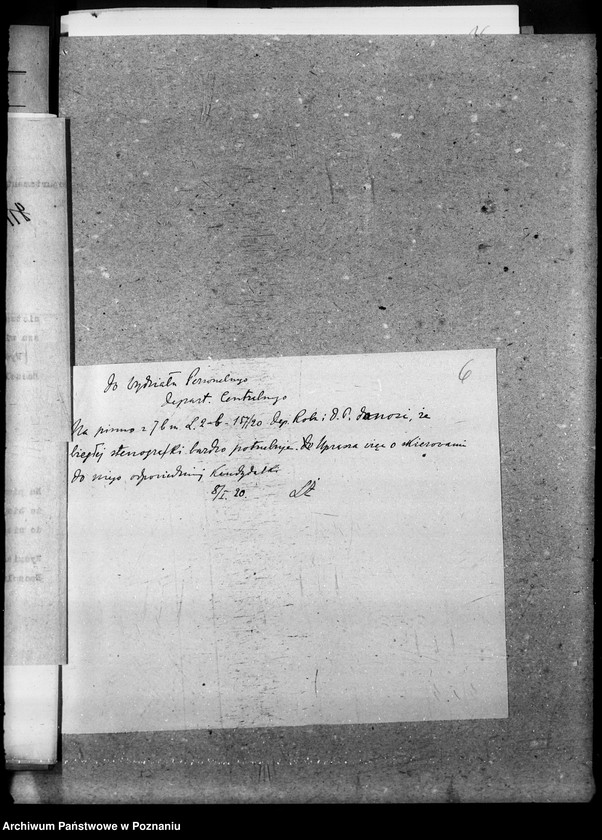 6
Do Wydziału Personalnego
Depart. Centralnego
Na pismo z 7 b m L. 2-b- 157/20 Dep. Rob. i O. P. donosi, że
biegłej stenografki bardzo potrzebuje. Uprasza więc o skierowanie
do niego odpowiedniej kandydatki
8/I. 20.
Archiwum Państwowe w Poznaniu